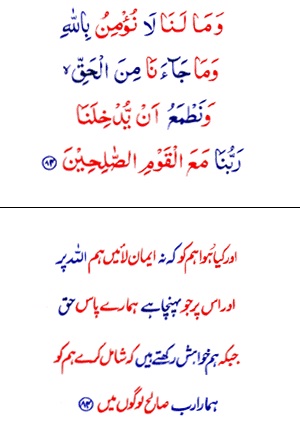 وَمَا لَنَا لَا نُؤْمِنُ بِاللّٰهِ
وَمَا جَآءَنَا مِنَ الْحَقِّ ۙ
وَنَطْمَعُ اَنْ يُّدْخِلَنَا
رَبُّنَا مَعَ الْقَوْمِ الصّٰلِحِيْنَ ﴿۸۴﴾
اور کیا ہُوا ہم کو کہ نہ ایمان لائیں ہم اللہ پر
اور اس پر جو پہنچا ہے ہمارے پاس حق
جبکہ ہم خواہش رکھتے ہیں کہ شامل کرے ہم کو
ہمارا رب صالح لوگوں میں ﴿۸۴﴾